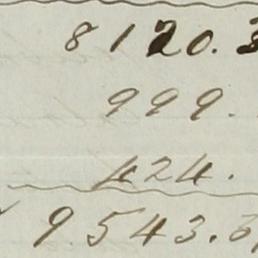 8120.3
999.
424.
9543.3